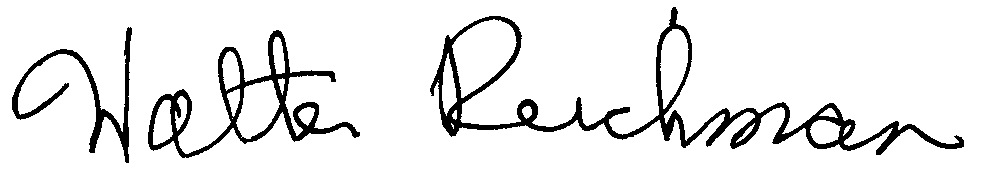 Walter Reichman